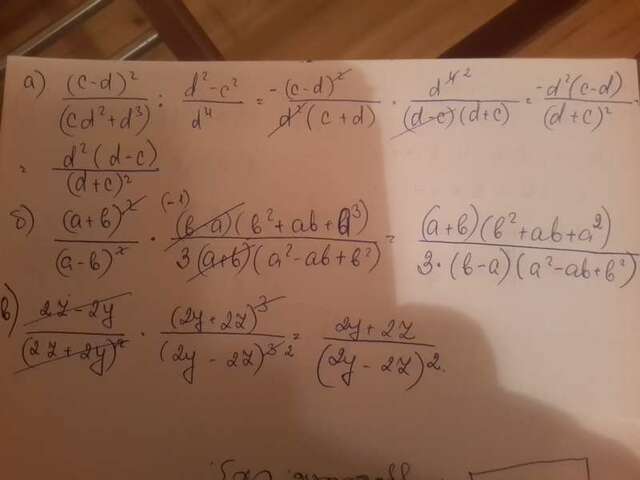 а) (c-d)² / (cd²+d³) : d²-c² / d⁴ = -(c-d)² / d²(c+d) · d⁴ ² / (d-c)(d+c) = -d²(c-d) / (d+c)² =
= d²(d-c) / (d+c)²
б) (a+b)² / (a-b)² · (-1) (b-a)(b²+ab+a³) / 3(a+b)(a²-ab+b²) = (a+b)(b²+ab+a²) / 3·(b-a)(a²-ab+b²)
в) 2z-2y / (2z+2y)² · (2y+2z)³ / (2y-2z)³ ² = 2y+2z / (2y-2z)².